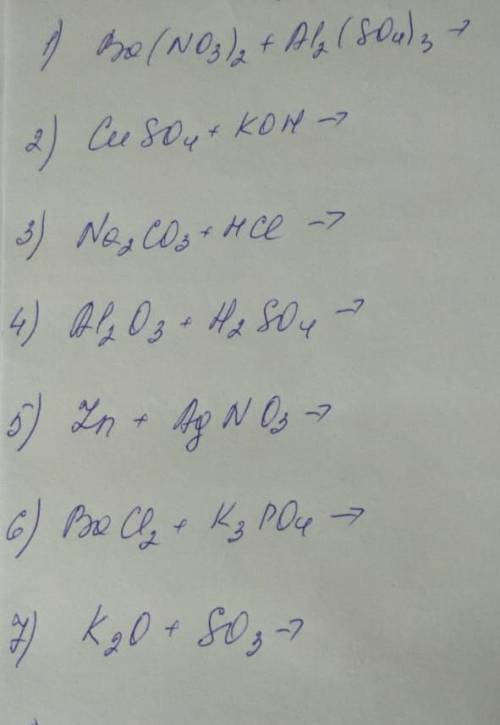 1) Ba(NO3)2 + Al2(SO4)3 →
2) CuSO4 + KOH →
3) Na2CO3 + HCl →
4) Al2O3 + H2SO4 →
5) Zn + AgNO3 →
6) BaCl2 + K3PO4 →
7) K2O + SO3 →